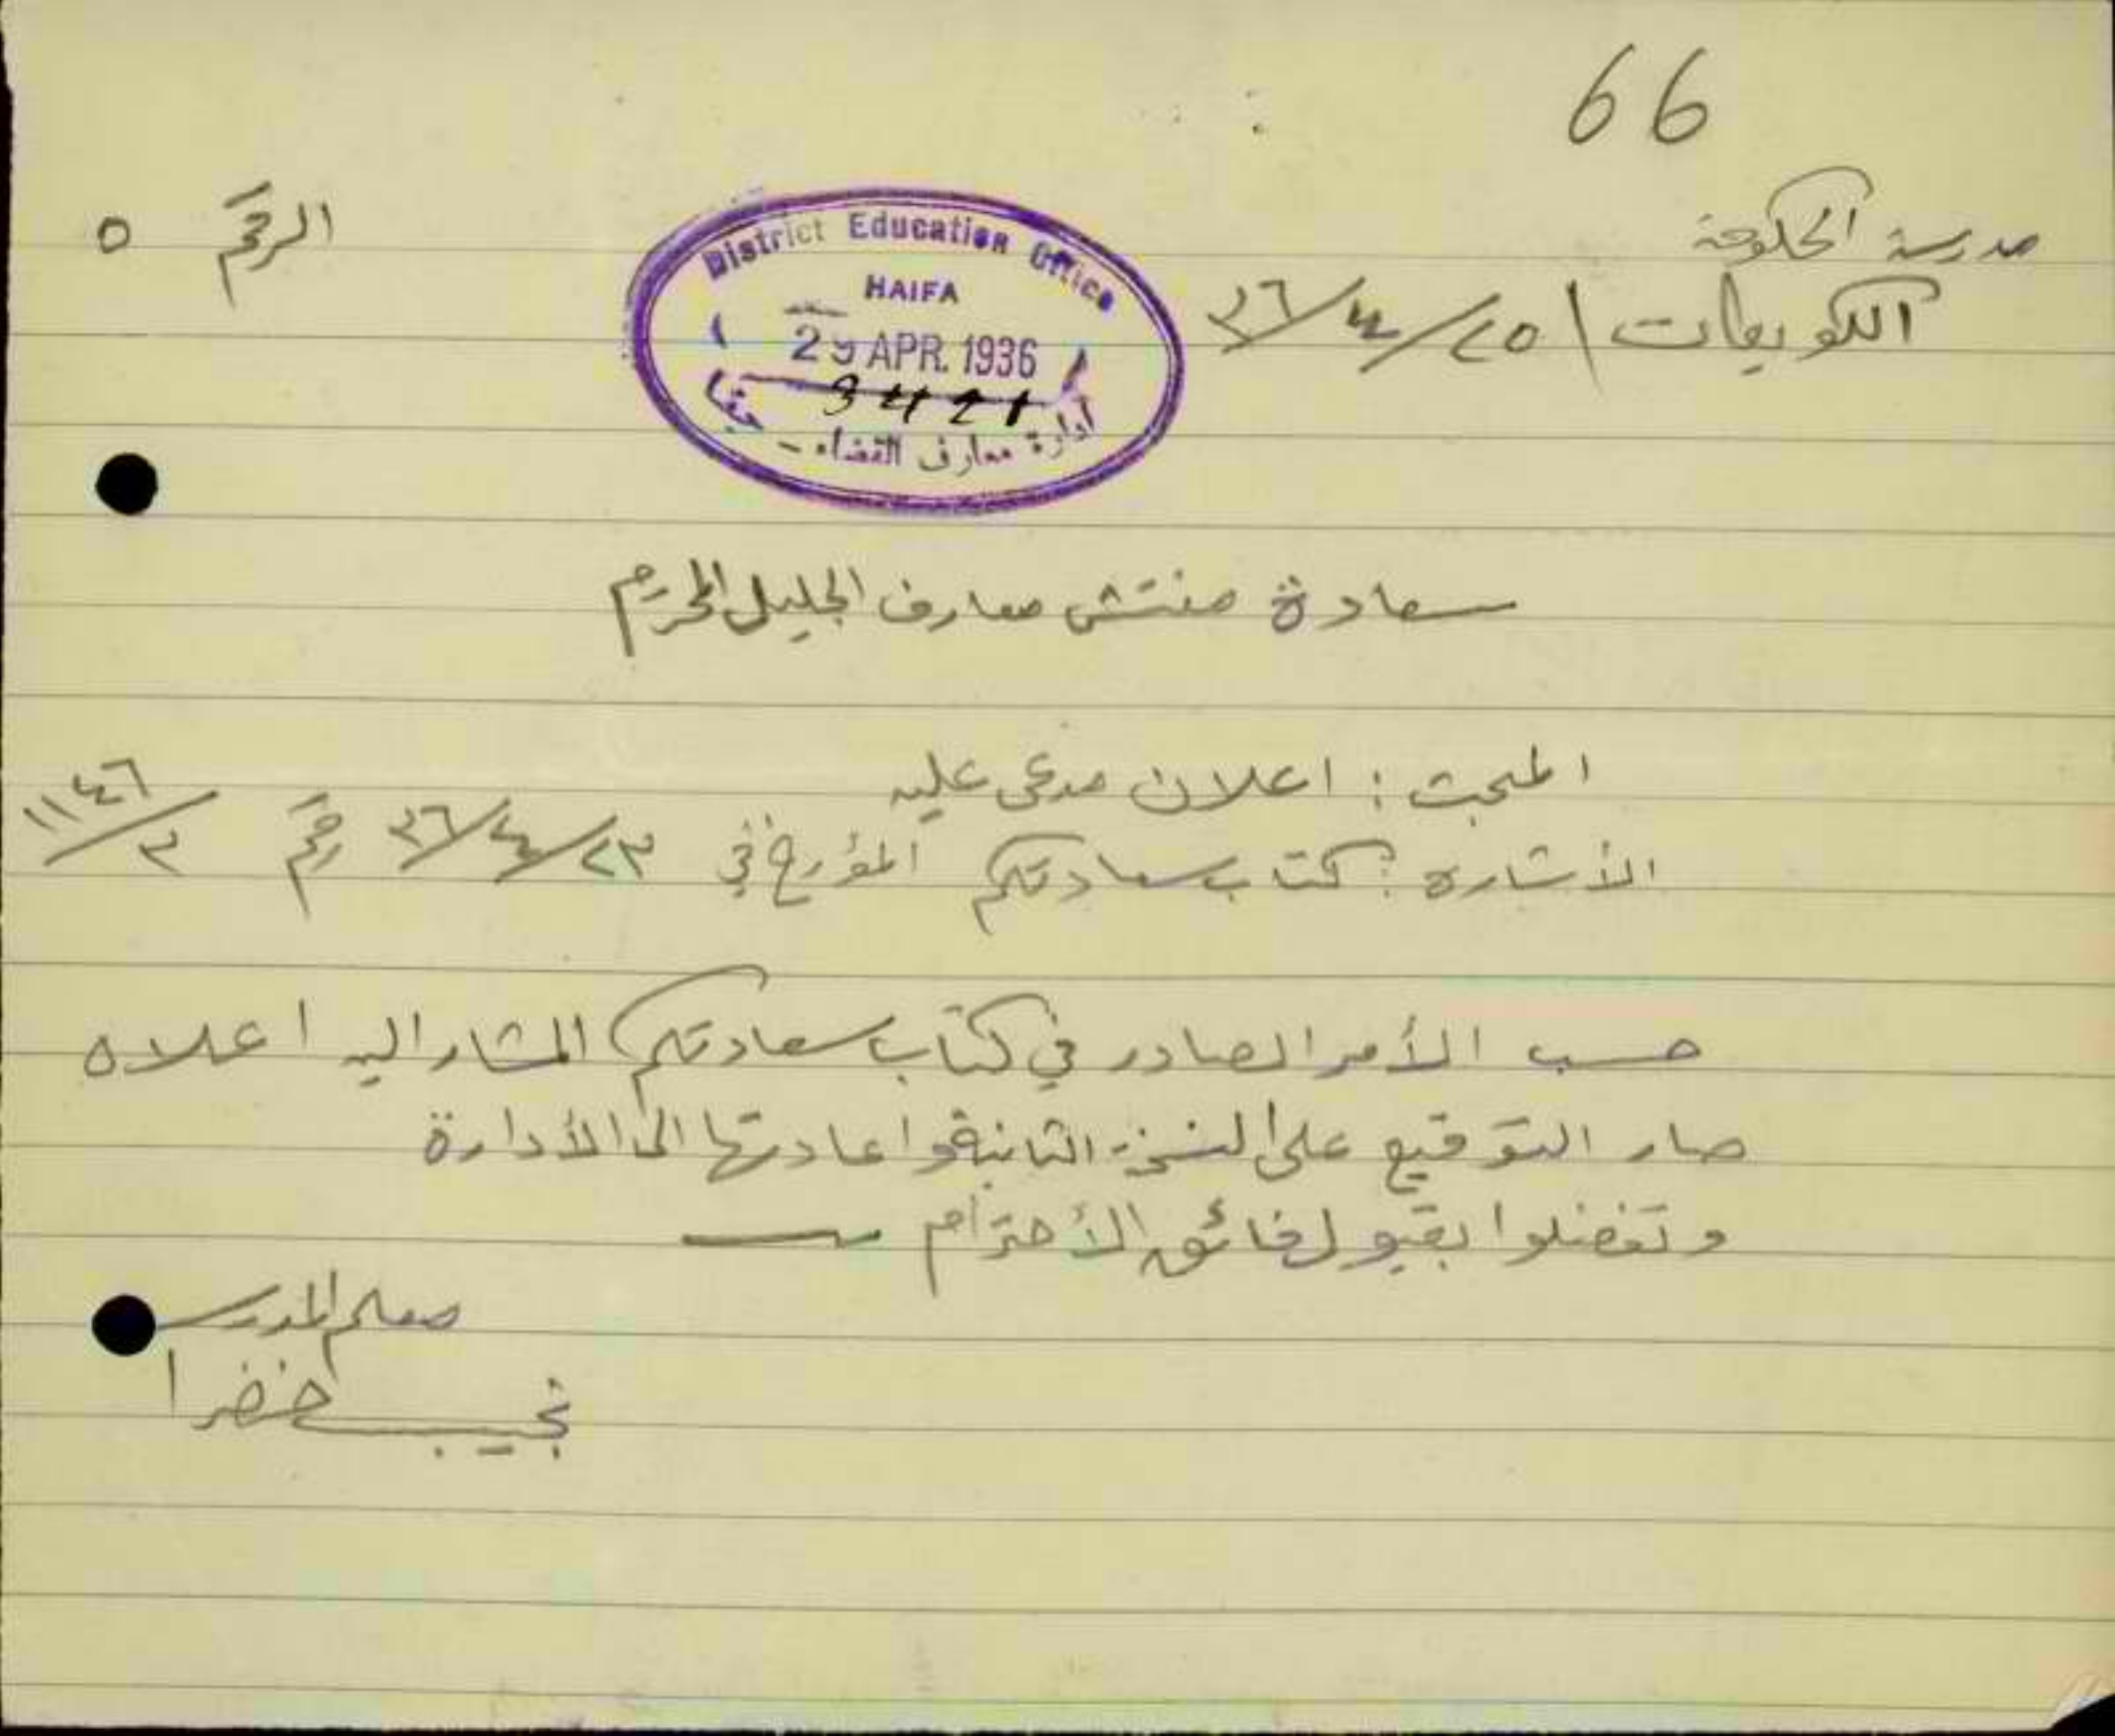 66
مدرسة الحكومة
الرقم ٥
الكويكات / ٢٥/٤/٣٦
District Education Office
HAIFA
APR. 1936
3421
ادارة معارف القضاء - حيفا
سعادة مفتش معارف الجليل المحترم
المبحث : اعلان مدعى عليه
الأشاره : كتاب سعادتكم المؤرخ في ٢٣/٤/٣٦ رقم ١١٤٦/٣
حسب الأمر الصادر في كتاب سعادتكم المشار اليه اعلاه
صار التوقيع على النسخة الثانية واعادتها الى الأدارة
وتفضلوا بقبول فائق الأحترام
معلم المدرسة
نجيب خضرا